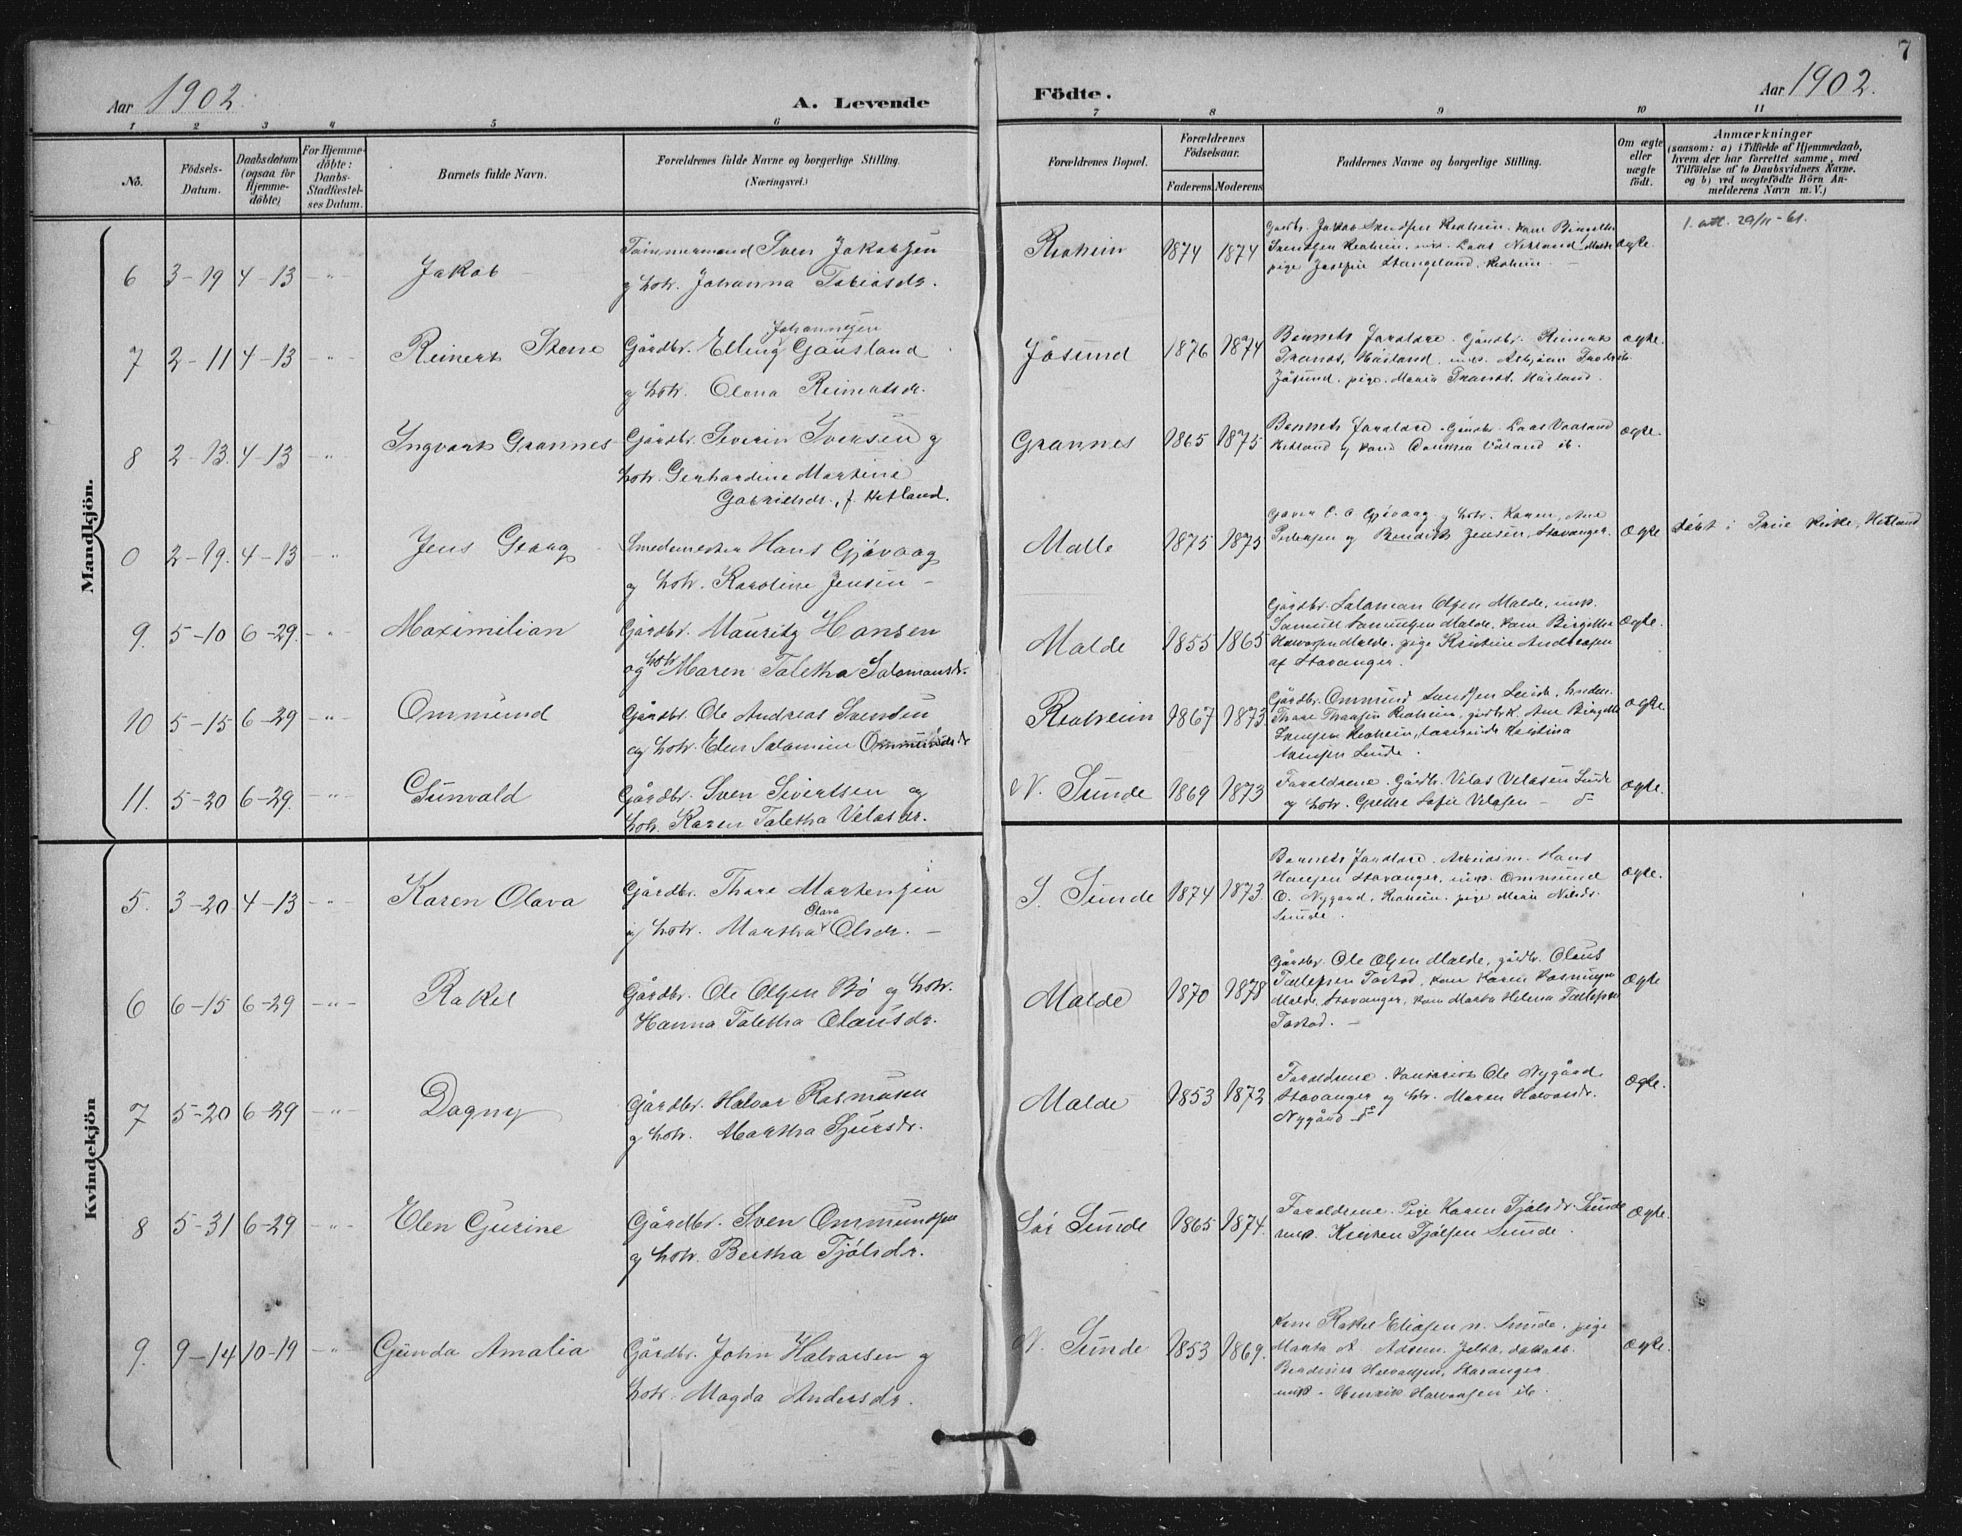 7
Aar 1902. A. Levende Födte. Aar 1902.
1 2 3 4 5 6 7 8 9 10 11
No. Födsels-Datum. Daabsdatum (ogsaa for Hjemme-döbte) For Hjemme-döbte: Daabs-Stadfæstel-ses Datum. Barnets fulde Navn. Forældrenes fulde Navne og borgerlige Stilling. (Næringsvei.) Forældrenes Bopæl. Forældrenes Födselsaar. Faderens Moderens Faddernes Navne og borgerlige Stilling. Om ægte eller uægte födt. Anmærkninger (saasom: a) i Tilfælde af Hjemmedaab, hvem der har forrettet samme, med Tilföielse af to Daabsvidners Navne. og b) ved uægtefödte Börn An-melderens Navn m. V.)
Mandkjön.
6 3-19 4-13 -"- Jakob Tömmermand Sven Jakobsen
g hstr. Johanna Tobiasdr.
Reoheim 1874 1874
pige Josefine Stangeland, Reoheim.
Ægte. 1. att. 29/11-61.
7 2-11 4-13 -"- Reinert Stene Gårdbr. Elling Johannesen Gausland
g hstr. Olena Reinertsdr.
Jåsund 1876 1874 Barnets Forældre. Gårdbr. Reinert
Jåsund. pige. Maria
Ægte.
8 2-13. 4-13 -"- Ingvart Grannes Gårdbr. Severin Iversen g
hstr. Gerhardine Martine
Gabrielsdr., f. Hetland.
Grannes 1865 1875 Barnets Forældre. Gårdbr. Lars
Ægte.
0 2-19. 4-13 -"- Jens Georg Smedemester Hans Gjövaag
g hstr. Karoline Jensen -
Malle 1875 1875 Gjövaag g hstr. Karen,
Pedersen g Bendik Jensen, Stavanger.
Ægte döbt i Frue kirke, Hetland
9. 5-10 6-29. -"- Maximilian Gårdbr. Mauritz Hansen
og hstr Maren Taletha Salomonsdr.
Malde 1855 1865 Gårdbr. Salamon Olsen Malde, ung.
Samuel Samuelsen Malde, kone Birgitte
Halvorsen Malde, pige Kristine Andreasen
af Stavanger.
Ægte.
10 5-15 6-29 -"- Ommund Gårdbr. Ole Andreas Svensen
og hstr. Elen Salamine Ommundsdr
Reoheim 1867 1873 Gårdbr. Ommund
Ægte.
11. 5-20 6-29. -"- Gunvald Gårdbr. Sven Sivertsen og
hstr. Karen Taletha Velasdr.
N. Sunde 1869 1873 Forældrene. Gårdbr. Velas Velasen Sunde
g hstr. Grethe Sofie Velasen -
Ægte.
Kvindekjön
5. 3-20 4-13 -"- Karen Olava Gårdbr. Thore Mortensen
g hstr. Martha Olava Olsdr. -
S. Sunde 1874 1873. Barnets Forældre. Arbeidsm. Hans
Hansen Stavanger, ungk. Ommund
O. Nygaard, Reoheim. pige Maria Nilsdr.
Sunde.
Ægte.
6 6-15 6-29 -"- Rakel Gårdbr. Ole Olsen Bö og hstr.
Hanna Taletha Olausdr.
Malde 1870 1878 Gårdbr. Ole Olsen Malde, gårdbr. Olaus
Tollefsen Tastad, kone Karen Rasmusen
Malde, Stavanger, kone Marta Helena Tollefsen
Tastad. -
Ægte
7 5-20 6-29 -"- Dagny Gårdbr. Halvor Rasmusen
g hstr. Martha Sjursdr.
Malde 1853 1872 Forældrene. Ole Nygård
Stavanger og hstr. Maren Halvorsdr.
Nygård
Ægte.
8 5-31 6-29 -"- Elen Gurine Gårdbr. Sven Ommundsen
g hstr. Bertha Tjölsdr.
Sör Sunde 1865 1874. Forældrene. Pige Karen Tjölsdr. Sunde
ungk. Kristen Tjölsen Sunde.
Ægte.
9. 9-14 10-19 -"- Gunda Amalia Gårdbr. John Halvorsen g
hstr. Magda Andersdr.
N. Sunde 1853 1869. Kone Rakel Eliasen n. Sunde. pige
Marta A.
Halvorsen, Stavanger
ungk. Henrik Halvorsen ib.
Ægte.